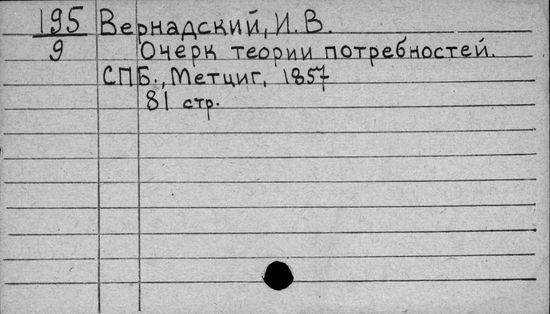 195 Вернадский, И. В.
9 Очерк теории потребностей.
СПБ., Метциг, 1857
81 стр.